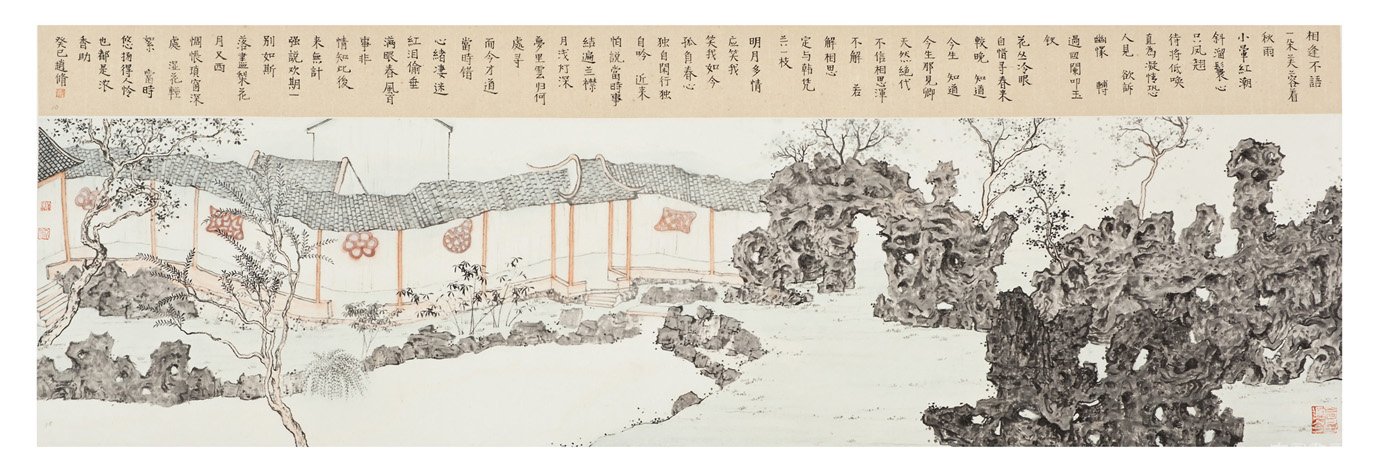 相逢不語
一朵芙蓉着
秋雨
小暈紅潮
斜溜鬟心
只凤翹
待將低喚
直為凝情恐
人見 欲訴
幽懷 轉
過迴闌叩玉
釵
花丛冷眼
自惜尋春来
較晚 知道
今生 知道
今生那見卿
天然絶代
不信相思渾
不解 若
解相思
定与韩凭
共一枝
明月多情
应笑我
笑我如今
孤負春心
独自闲行独
自吟 近来
怕説當時事
結遍兰襟
月浅灯深
夢里雲归何
處寻
而今才道
當時错
心緒凄迷
红泪偷垂
满眼春風百
事非
情知此後
来無計
强説欢期一
别如斯
落盡梨花
月又西
惆悵瑣窗深
處 湿花輕
絮 當時
悠扬得人怜
也都是浓
香助
癸巳趙脩